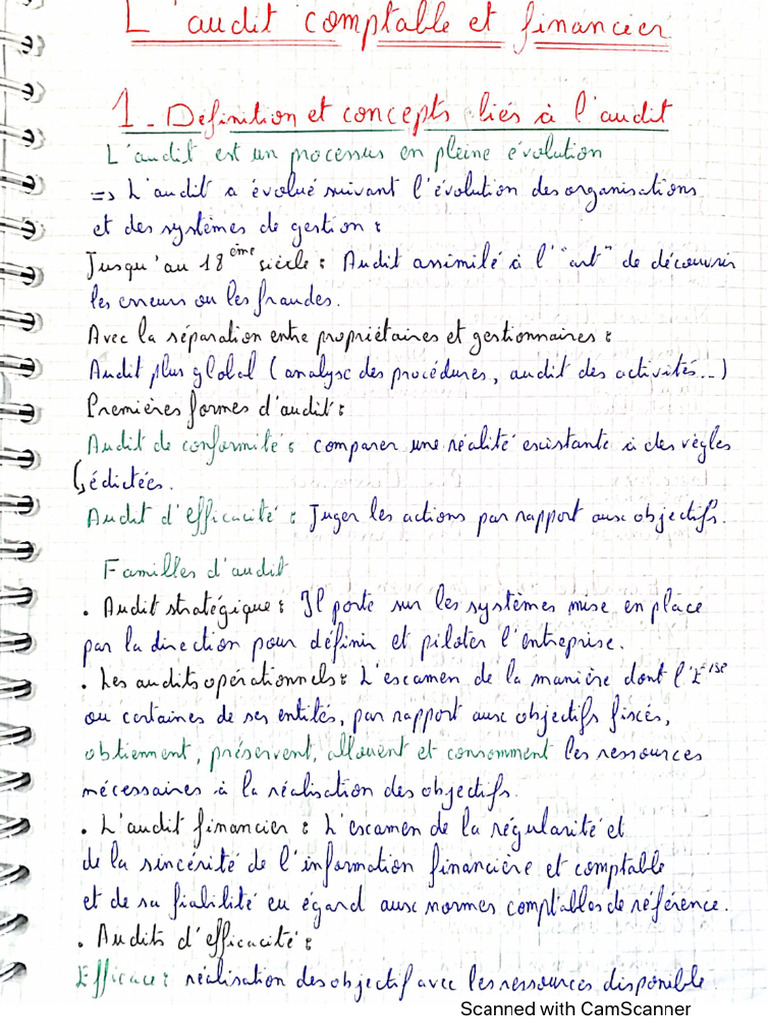 L'audit comptable et financier
1 - Définition et concepts liés à l'audit
L'audit est un processus en pleine évolution
=> L'audit a évolué suivant l'évolution des organisations
et des systèmes de gestion :
Jusqu'au 18ème siècle : Audit assimilé à l'"art" de découvrir
les erreurs ou les fraudes.
Avec la séparation entre propriétaires et gestionnaires :
Audit plus global (analyse des procédures, audit des activités...)
Premières formes d'audit :
Audit de conformité : comparer une réalité existante à des règles
édictées.
Audit d'efficacité : Juger les actions par rapport aux objectifs.
Familles d'audit
. Audit stratégique : Il porte sur les systèmes mise en place
par la direction pour définir et piloter l'entreprise.
. Les audits opérationnels : L'examen de la manière dont l'Eise
ou certaines de ses entités, par rapport aux objectifs fixés,
obtiennent, préservent, allouent et consomment les ressources
nécessaires à la réalisation des objectifs.
. L'audit financier : L'examen de la régularité et
de la sincérité de l'information financière et comptable
et de sa fiabilité eu égard aux normes comptables de référence.
. Audits d'efficacité :
Efficace : réalisation des objectif avec les ressources disponible.
Scanned with CamScanner